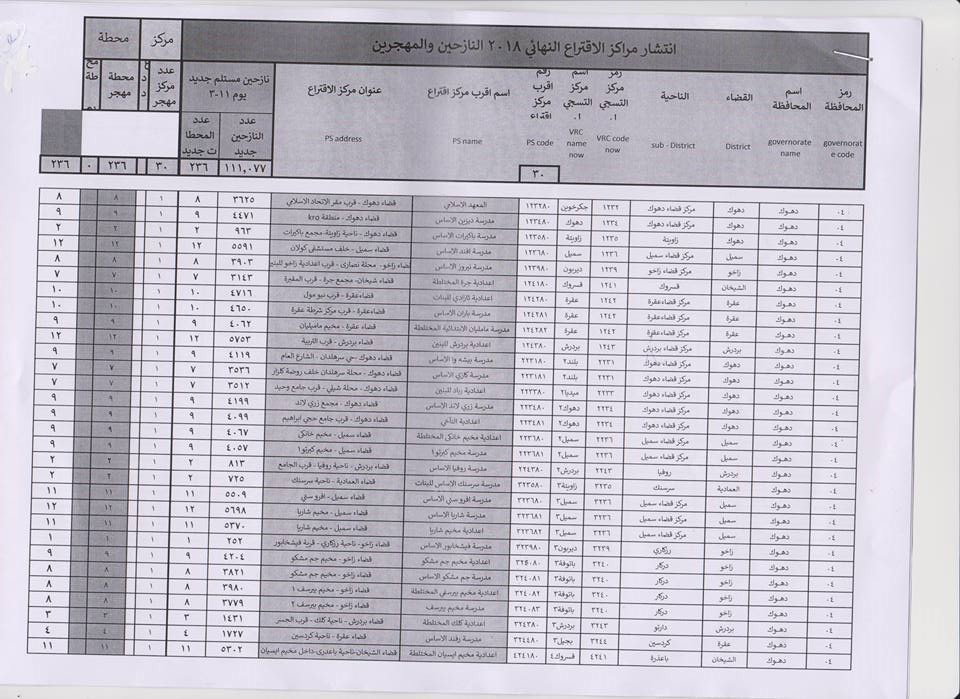 انتشار مراكز الاقتراع النهائي ٢٠١٨ النازحين والمهجرين
مركز
محطة
رمز المحافظة governorate code
اسم المحافظة governorate name
القضاء District
الناحية sub - District
رمز مركز التسجي VRC code now
اسم مركز التسجي VRC name now
رقم اقرب مركز اقتراع PS code
اسم اقرب مركز اقتراع PS name
عنوان مركز الاقتراع PS address
نازحين مستلم جديد يوم ١١-٣
عدد النازحين جديد
عدد المحطات جديد
عدد مركز مهجر
محطة مهجر
٣٠ ١١١,٠٧٧ ٢٣٦ ٣٠ ٢٣٦ ٠ ٢٣٦
٠٤ دهوك دهوك مركز قضاء دهوك ١٢٣٢ جكرخوين ١٢٣٢٨٠ المعهد الاسلامي قضاء دهوك - قرب مقر الاتحاد الاسلامي ٣٦٢٥ ٨ ١ ٨ ٨
٠٤ دهوك دهوك مركز قضاء دهوك ١٢٣٤ دهوك ١٢٣٤٨٠ مدرسة ديزين الاساس قضاء دهوك - منطقة kro ٤٤٧١ ٩ ١ ٩ ٩
٠٤ دهوك دهوك زاويتة ١٢٣٥ زاويتة ١٢٣٥٨٠ مدرسة باكيرات الاساس قضاء دهوك - ناحية زاويتة- مجمع باكيرات ٩٦٣ ٢ ١ ٢ ٢
٠٤ دهوك سميل مركز قضاء سميل ١٢٣٦ سميل ١٢٣٦٨٠ مدرسة افند الاساس قضاء سميل - خلف مستشفى كولان ٥٥٩١ ١٢ ١ ١٢ ١٢
٠٤ دهوك زاخو مركز قضاء زاخو ١٢٣٩ ديربون ١٢٣٩٨٠ مدرسة نيروز الاساس قضاء زاخو - محلة نصارى - قرب اعدادية زاخو للبنين ٣٩٠٣ ٨ ١ ٨ ٨
٠٤ دهوك الشيخان قسروك ١٢٤١ قسروك ١٢٤١٨٠ اعدادية جرة المختلطة قضاء شيخان- مجمع جرة - قرب المقبرة ٣١٤٣ ٧ ١ ٧ ٧
٠٤ دهوك عقرة مركز قضاءعقرة ١٢٤٢ عقرة ١٢٤٢٨٠ اعدادية ئازادي للبنات قضاءعقرة - قرب نيو مول ٤٧١٦ ١٠ ١ ١٠ ١٠
٠٤ دهوك عقرة مركز قضاءعقرة ١٢٤٢ عقرة ١٢٤٢٨١ مدرسة باران الاساس قضاءعقرة - قرب مركز شرطة عقرة ٤٦٥٠ ١٠ ١ ١٠ ١٠
٠٤ دهوك عقرة مركز قضاءعقرة ١٢٤٢ عقرة ١٢٤٢٨٢ مدرسة مامليان الابتدائية المختلطة قضاء عقرة - مخيم ماميليان ٤٠٦٢ ٩ ١ ٩ ٩
٠٤ دهوك بردرش مركز قضاء بردرش ١٢٤٣ بردرش ١٢٤٣٨٠ اعدادية بردرش للبنين قضاء بردرش - قرب التربية ٥٧٥٣ ١٢ ١ ١٢ ١٢
٠٤ دهوك دهوك مركز قضاء دهوك ٢٢٣١ بلند٢ ٢٢٣١٨٠ مدرسة بيشه وا الاساس قضاء دهوك -حي سرهلدان - الشارع العام ٤١١٩ ٩ ١ ٩ ٩
٠٤ دهوك دهوك مركز قضاء دهوك ٢٢٣١ بلند٢ ٢٢٣١٨١ مدرسة كازي الاساس قضاء دهوك - محلة سرهلدان خلف روضة كلزار ٣٥٣٦ ٧ ١ ٧ ٧
٠٤ دهوك دهوك مركز قضاء دهوك ٢٢٣٣ ميديا٢ ٢٢٣٣٨٠ اعدادية رباد للبنين قضاء دهوك - محلة شيلي - قرب جامع وحيد ٣٥١٢ ٧ ١ ٧ ٧
٠٤ دهوك دهوك مركز قضاء دهوك ٢٢٣٤ دهوك٢ ٢٢٣٤٨٠ مدرسة زري لاند الاساس قضاء دهوك - مجمع زري لاند ٤١٩٩ ٩ ١ ٩ ٩
٠٤ دهوك دهوك مركز قضاء دهوك ٢٢٣٤ دهوك٢ ٢٢٣٤٨١ اعدادية التآخي قضاء دهوك - قرب جامع حجي ابراهيم ٤٠٩٩ ٩ ١ ٩ ٩
٠٤ دهوك سميل مركز قضاء سميل ٢٢٣٦ سميل٢ ٢٢٣٦٨٠ اعدادية مخيم خانكي المختلطة قضاء سميل - مخيم خانكي ٤٠٦٧ ٩ ١ ٩ ٩
٠٤ دهوك سميل مركز قضاء سميل ٢٢٣٦ سميل٢ ٢٢٣٦٨١ مدرسة مخيم كبرتو١ قضاء سميل - مخيم كبرتو١ ٤٠٥٧ ٩ ١ ٩ ٩
٠٤ دهوك بردرش روفيا ٢٢٤٣ بردرش٢ ٢٢٤٣٨٠ مدرسة روفيا الاساس قضاء بردرش - ناحية روفيا - قرب الجامع ٨١٣ ٢ ١ ٢ ٢
٠٤ دهوك العمادية سرسنك ٣٢٣٥ زاويتة٣ ٣٢٣٥٨٠ مدرسة سرسنك الاساس للبنات قضاء العمادية - ناحية سرسنك ٧٢٥ ٢ ١ ٢ ٢
٠٤ دهوك سميل مركز قضاء سميل ٣٢٣٦ سميل٣ ٣٢٣٦٨٠ مدرسة افرو سني الاساس قضاء سميل - افرو سني ٥٥٠٩ ١١ ١ ١١ ١١
٠٤ دهوك سميل مركز قضاء سميل ٣٢٣٦ سميل٣ ٣٢٣٦٨١ مدرسة شاريا الاساس قضاء سميل - مخيم شاريا ٥٦٩٨ ١٢ ١ ١٢ ١٢
٠٤ دهوك سميل مركز قضاء سميل ٣٢٣٦ سميل٣ ٣٢٣٦٨٢ اعدادية مخيم شاريا قضاء سميل - مخيم شاريا ٥٣٧٠ ١١ ١ ١١ ١١
٠٤ دهوك زاخو رزكاري ٣٢٣٩ ديربون٣ ٣٢٣٩٨٠ مدرسة فيشخابور الاساس قضاء زاخو- ناحية رزكاري - قرية فيشخابور ٢٥٢ ١ ١ ١ ١
٠٤ دهوك زاخو دركار ٣٢٤٠ باتوفة٣ ٣٢٤٠٨٠ اعدادية مخيم جم مشكو قضاء زاخو - مخيم جم مشكو ٤٢٠٤ ٩ ١ ٩ ٩
٠٤ دهوك زاخو دركار ٣٢٤٠ باتوفة٣ ٣٢٤٠٨١ مدرسة جم مشكو الاساس قضاء زاخو - مخيم جم مشكو ٣٨٢١ ٨ ١ ٨ ٨
٠٤ دهوك زاخو دركار ٣٢٤٠ باتوفة٣ ٣٢٤٠٨٢ اعدادية مخيم بيرسفي المختلطة قضاء زاخو - مخيم بيرسف ١ ٣٩٨٠ ٨ ١ ٨ ٨
٠٤ دهوك زاخو دركار ٣٢٤٠ باتوفة٣ ٣٢٤٠٨٣ مدرسة مخيم بيرسف قضاء زاخو - مخيم بيرسف ٢ ٣٧٧٩ ٨ ١ ٨ ٨
٠٤ دهوك بردرش دارتو ٣٢٤٣ بردرش٣ ٣٢٤٣٨٠ اعدادية كلك المختلطة قضاء بردرش - ناحية كلك - قرب الجسر ١٤٣١ ٣ ١ ٣ ٣
٠٤ دهوك عقرة كردسين ٣٢٤٤ بجيل٣ ٣٢٤٤٨٠ مدرسة رفند الاساس قضاء عقرة - ناحية كردسين ١٧٢٧ ٤ ١ ٤ ٤
٠٤ دهوك الشيخان باعذرة ٤٢٤١ قسروك٤ ٤٢٤١٨٠ اعدادية مخيم ايسيان المختلطة قضاء الشيخان-ناحية باعدرى-داخل مخيم ايسيان ٥٣٠٢ ١١ ١ ١١ ١١